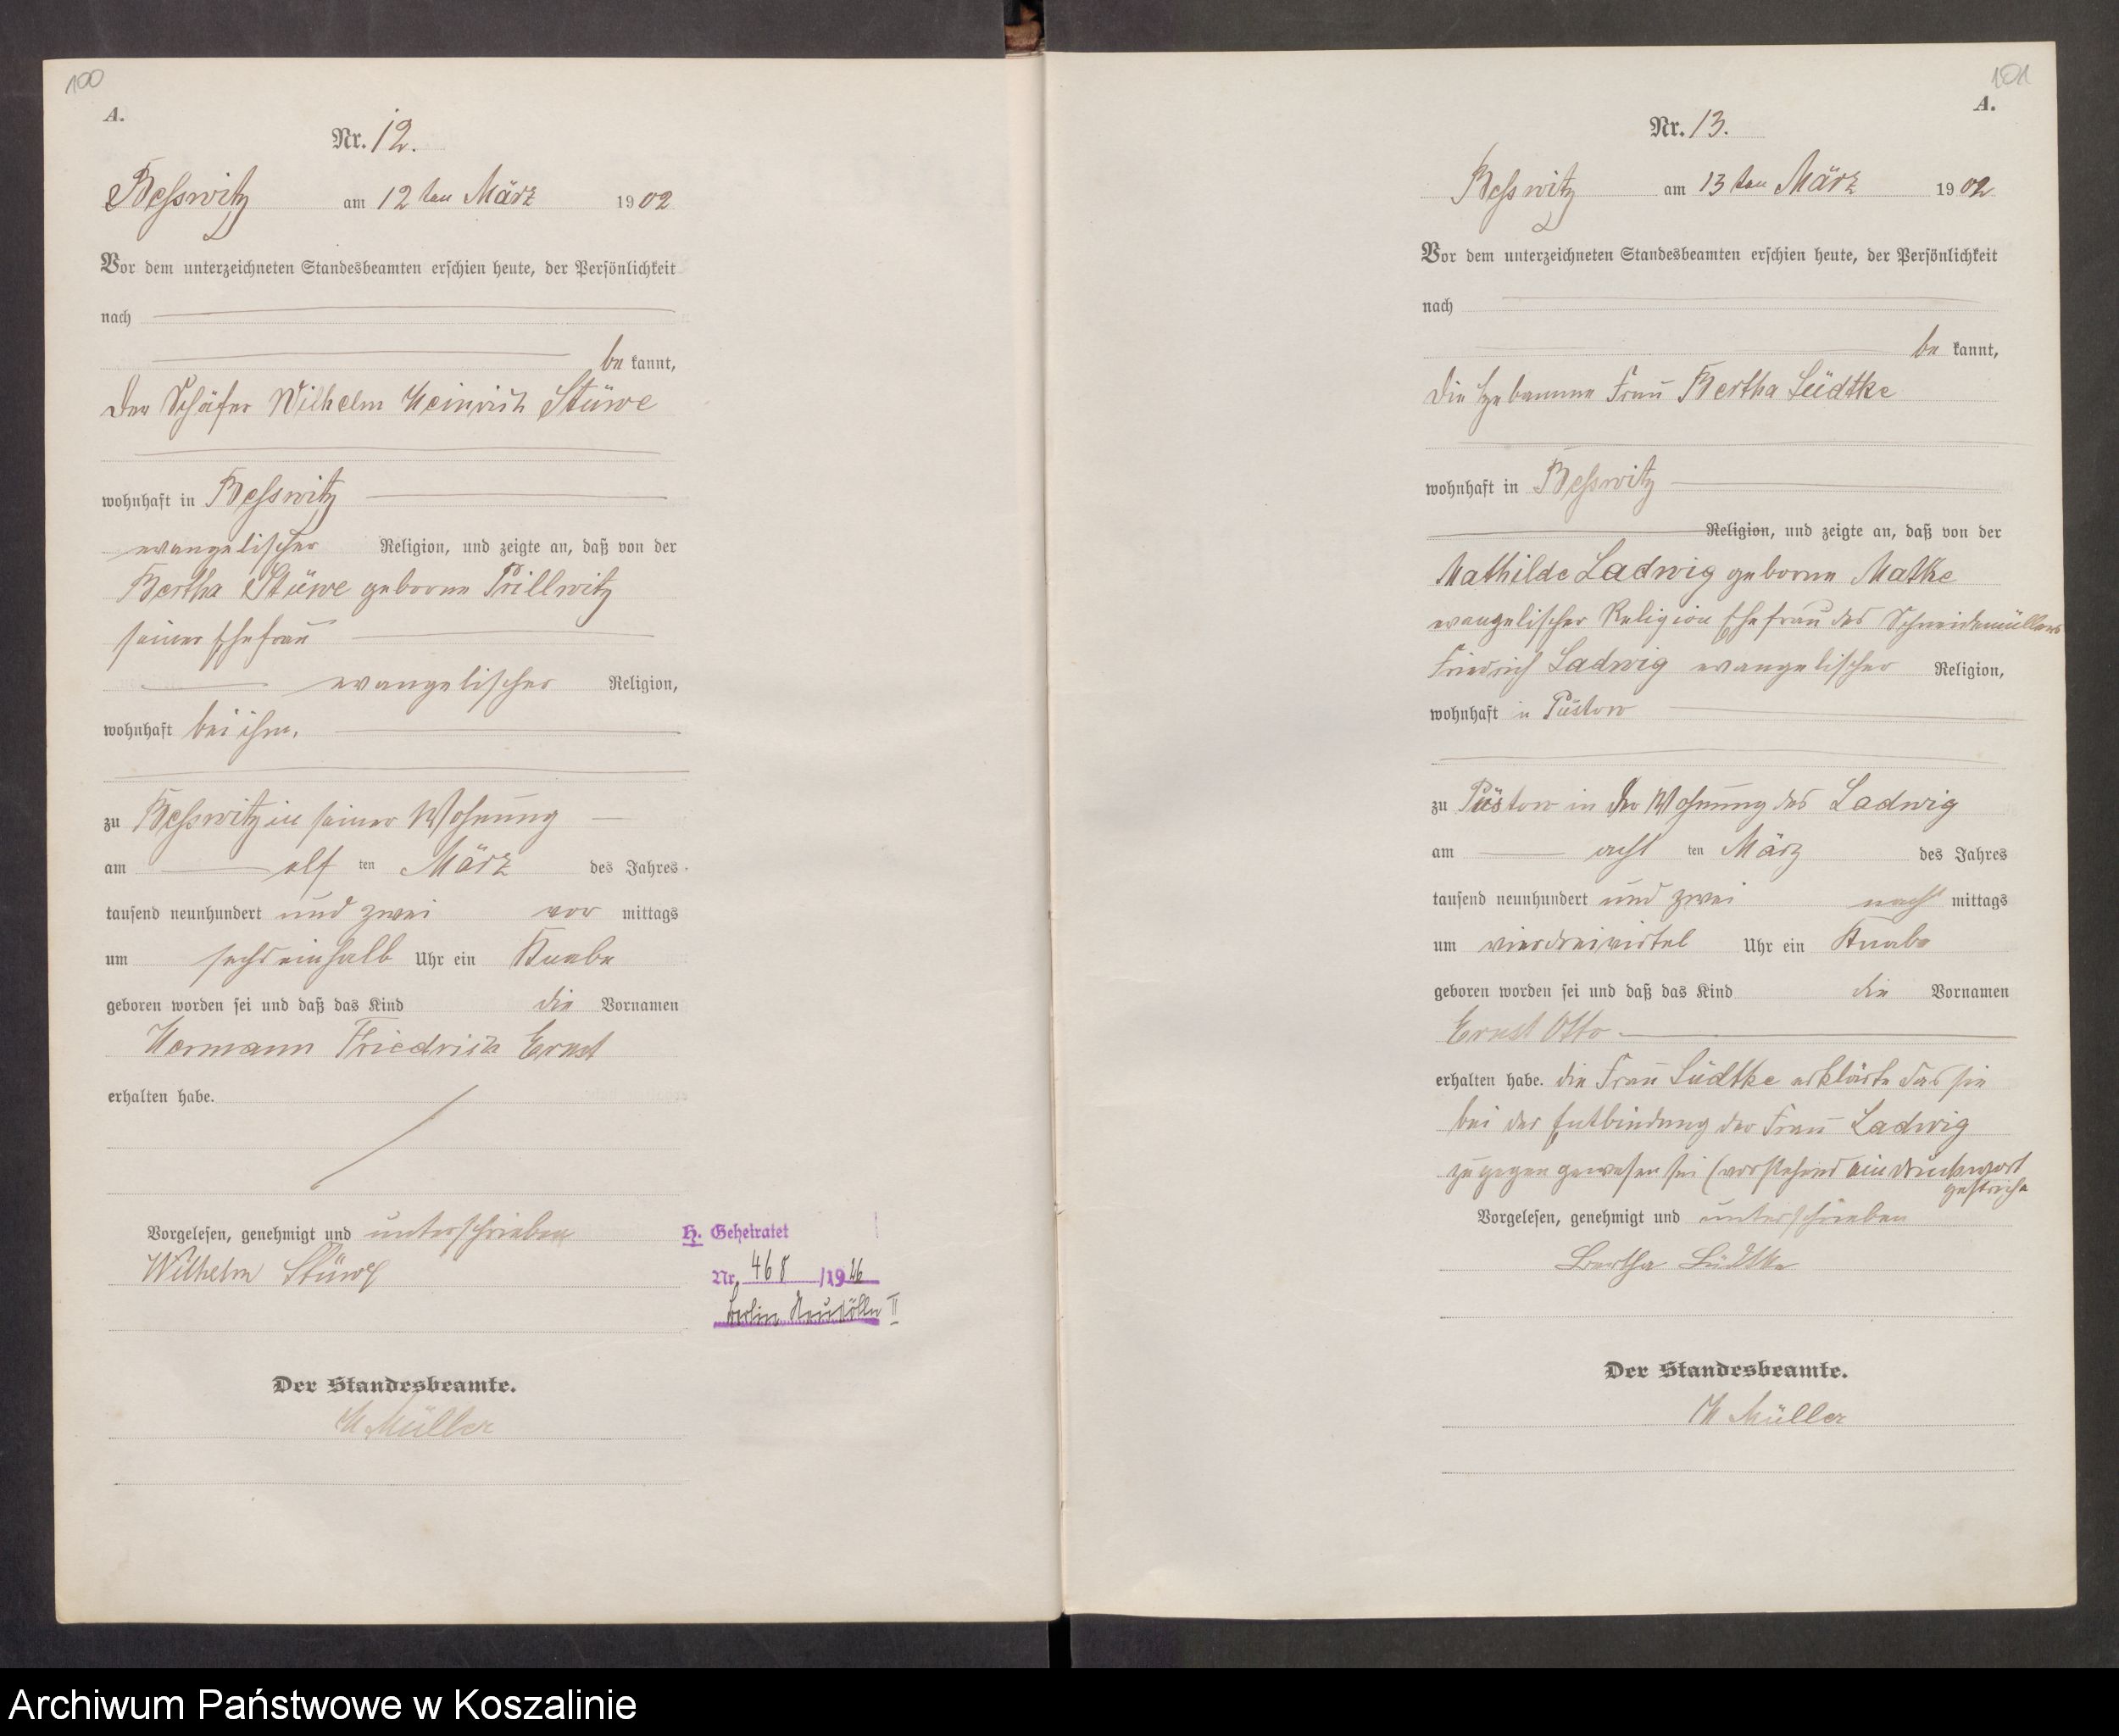 100
A.
Nr. 12.
Besswitz am 12ten März 1902
Vor dem unterzeichneten Standesbeamten erschien heute, der Persönlichkeit
nach
be kannt,
der Schäfer Wilhelm Heinrich Stüwe
wohnhaft in Besswitz
evangelischer Religion, und zeigte an, daß von der
Bertha Stüwe geborne Prillwitz
seiner Ehefrau
evangelischer Religion,
wohnhaft bei ihm,
zu Besswitz in seiner Wohnung
am elf ten März des Jahres
tausend neunhundert und zwei vor mittags
um sechseinhalb Uhr ein Knabe
geboren worden sei und daß das Kind die Vornamen
Hermann Friedrich Ernst
erhalten habe.
Vorgelesen, genehmigt und unterschrieben
Wilhelm Stüwe
H. Geheiratet
Nr. 468 /1926
Berlin Neukölln II
Der Standesbeamte.
H Müller
101
A.
Nr. 13.
Besswitz am 13ten März 1902
Vor dem unterzeichneten Standesbeamten erschien heute, der Persönlichkeit
nach
be kannt,
die Hebamme Frau Bertha Lüdtke
wohnhaft in Besswitz
Religion, und zeigte an, daß von der
Mathilde Ladwig geborne Matke
evangelischer Religion Ehefrau des Schneidemüllers
Friedrich Ladwig evangelischer Religion,
wohnhaft in Püstow
zu Püstow in der Wohnung des Ladwig
am acht ten März des Jahres
tausend neunhundert und zwei nach mittags
um vierdreiviertel Uhr ein Knabe
geboren worden sei und daß das Kind die Vornamen
Ernst Otto
erhalten habe. die Frau Lüdtke erklärte das sie
bei der Entbindung der Frau Ladwig
zugegen gewesen sei (vorstehend ein druckwort
gestrich
Vorgelesen, genehmigt und unterschrieben
Bertha Lüdtke
Der Standesbeamte.
H Müller
Archiwum Państwowe w Koszalinie